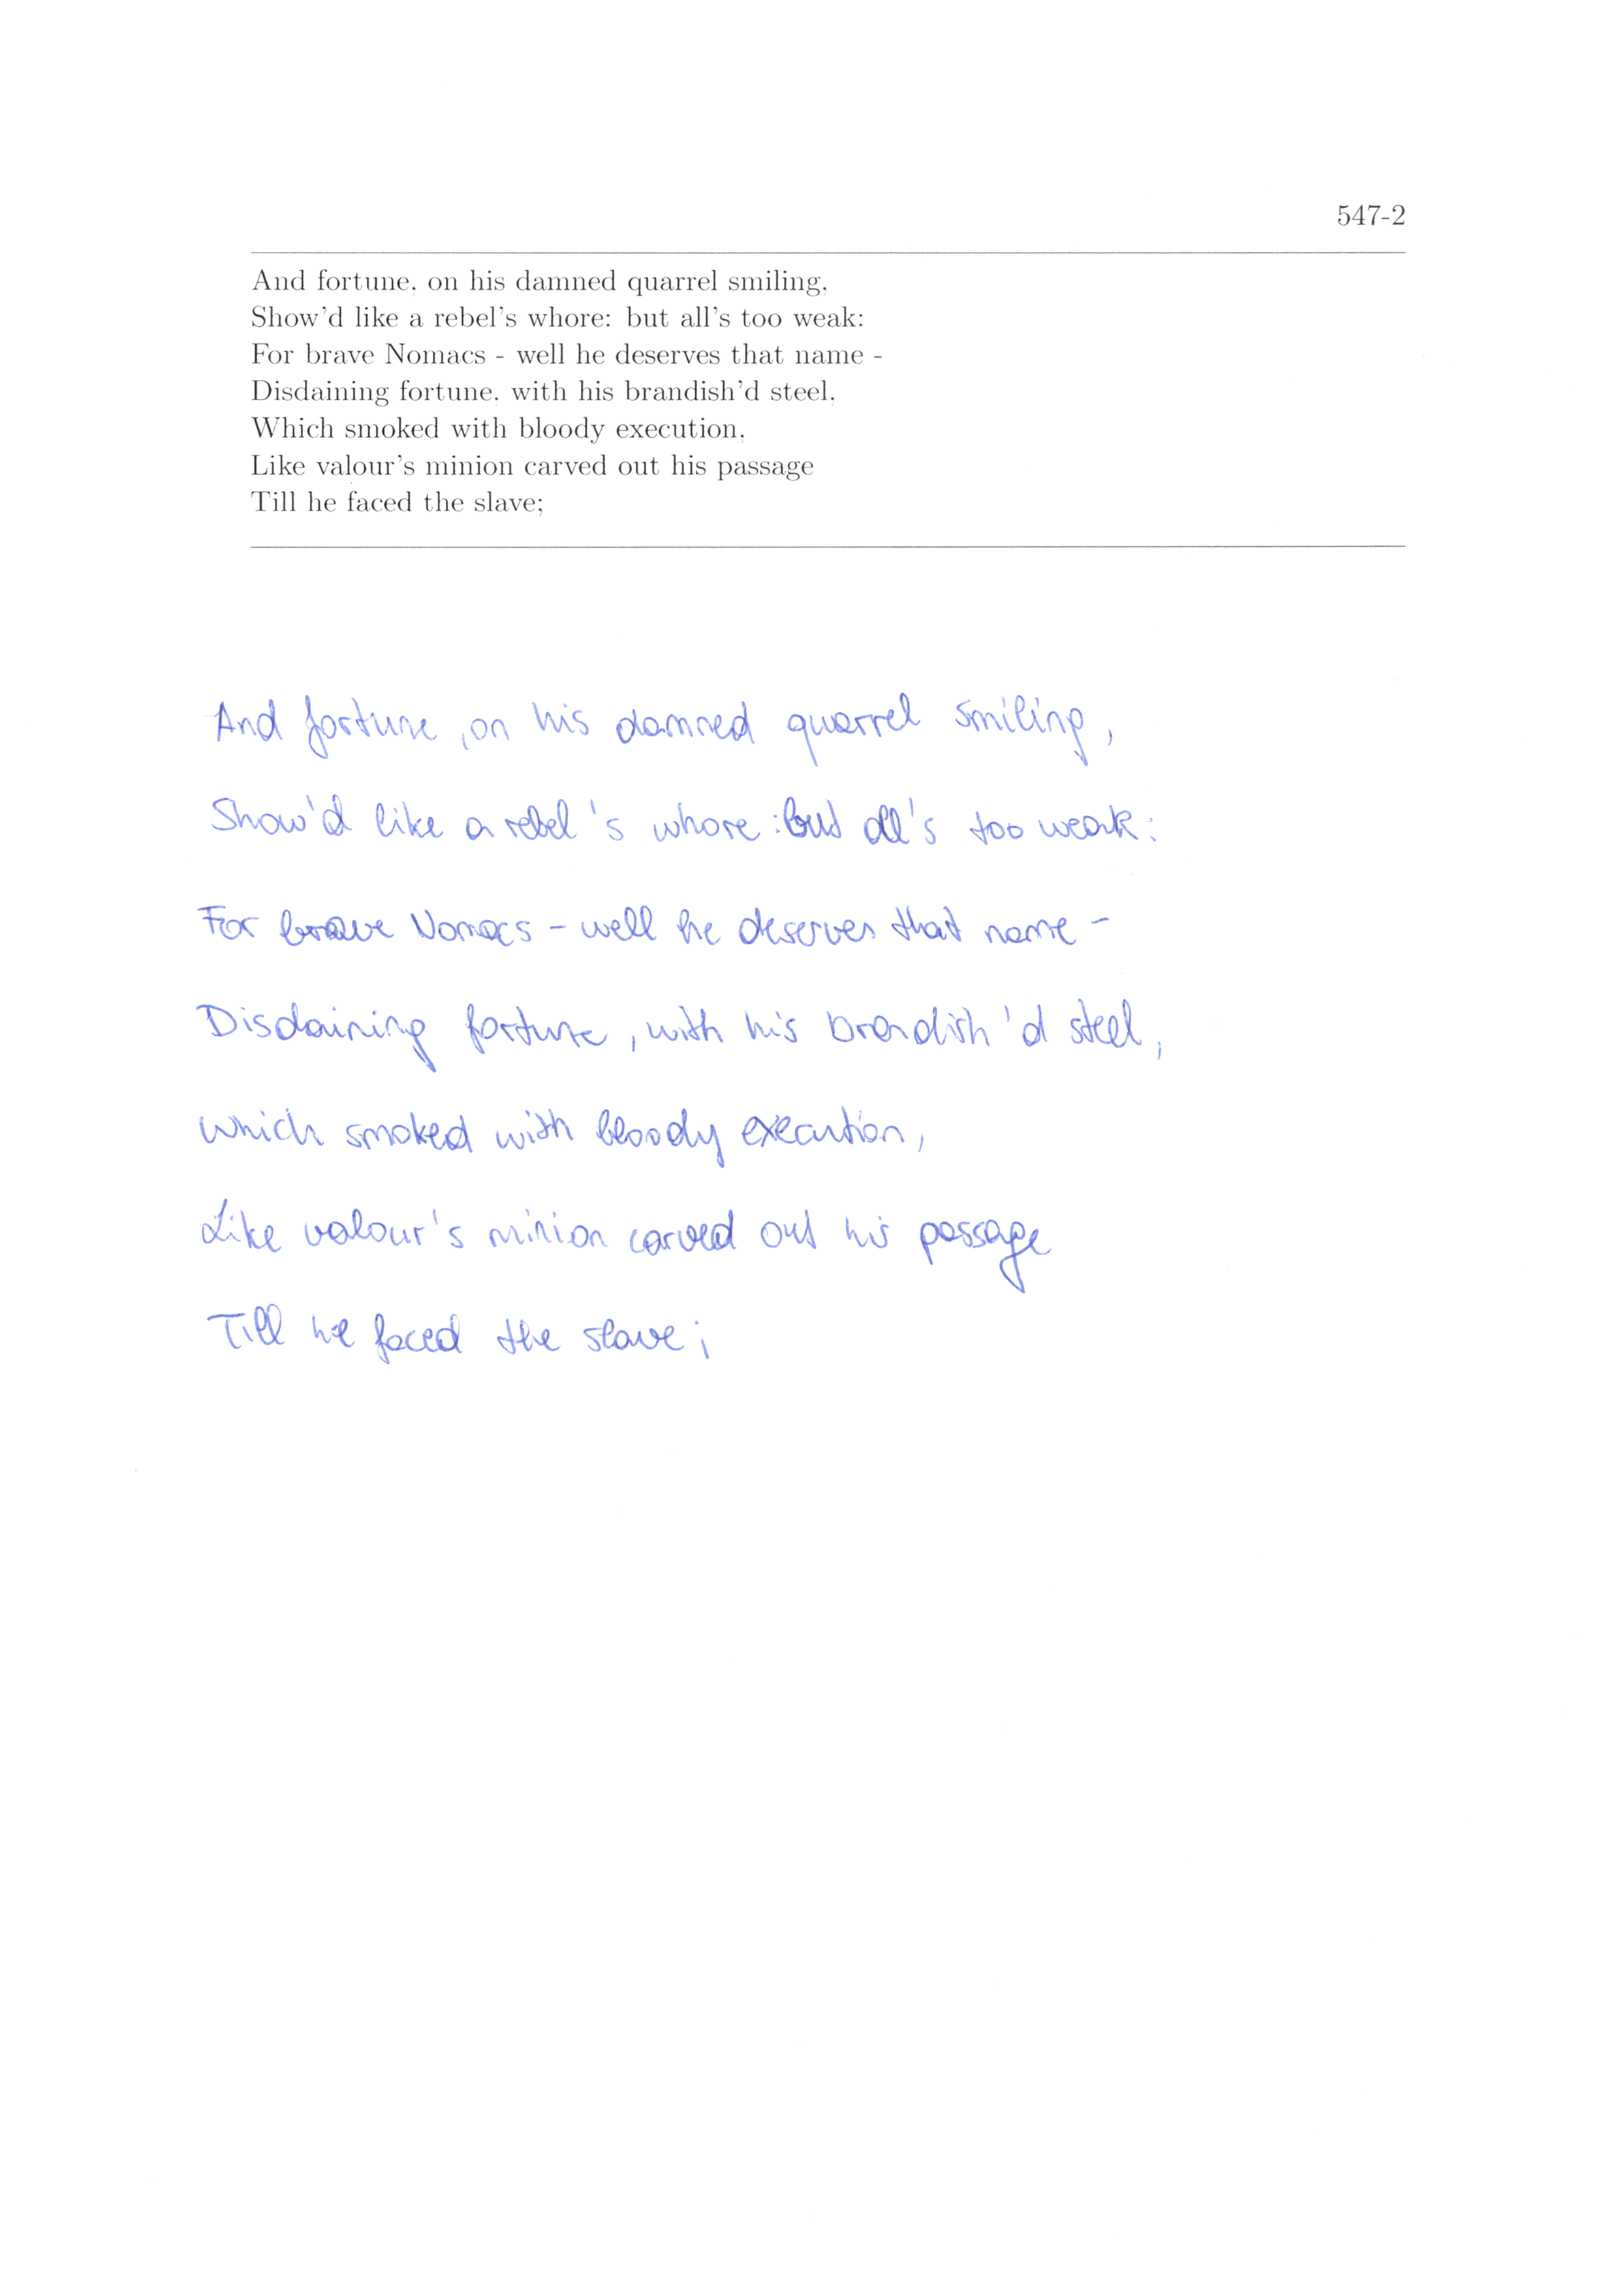 547-2
And fortune, on his damned quarrel smiling,
Show'd like a rebel's whore: but all's too weak:
For brave Nomacs - well he deserves that name -
Disdaining fortune, with his brandish'd steel,
Which smoked with bloody execution,
Like valour's minion carved out his passage
Till he faced the slave;
And fortune, on his damned quarrel smiling,
Show'd like a rebel's whore: but all's too weak:
For brave Nomacs - well he deserves that name -
Disdaining fortune, with his brandish'd steel,
which smoked with bloody execution,
Like valour's minion carved out his passage
Till he faced the slave;